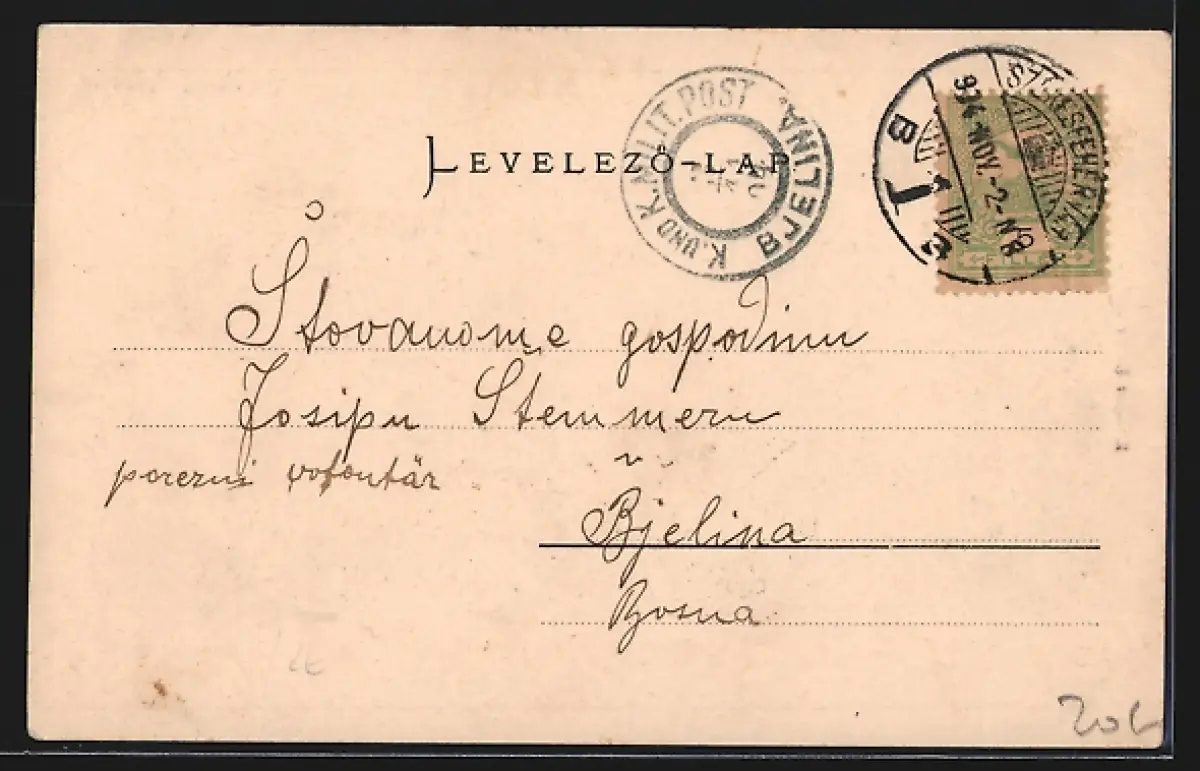 LEVELEZŐ-LAP
K. UND K. MILIT. POST
BJELINA
SZÉKESFEHÉRVÁR
904 NOV. -2- N8
B 1
Štovanome gospodinu
Josipu Stemmeru
porezni volontär
u
Bjelina
Bosna